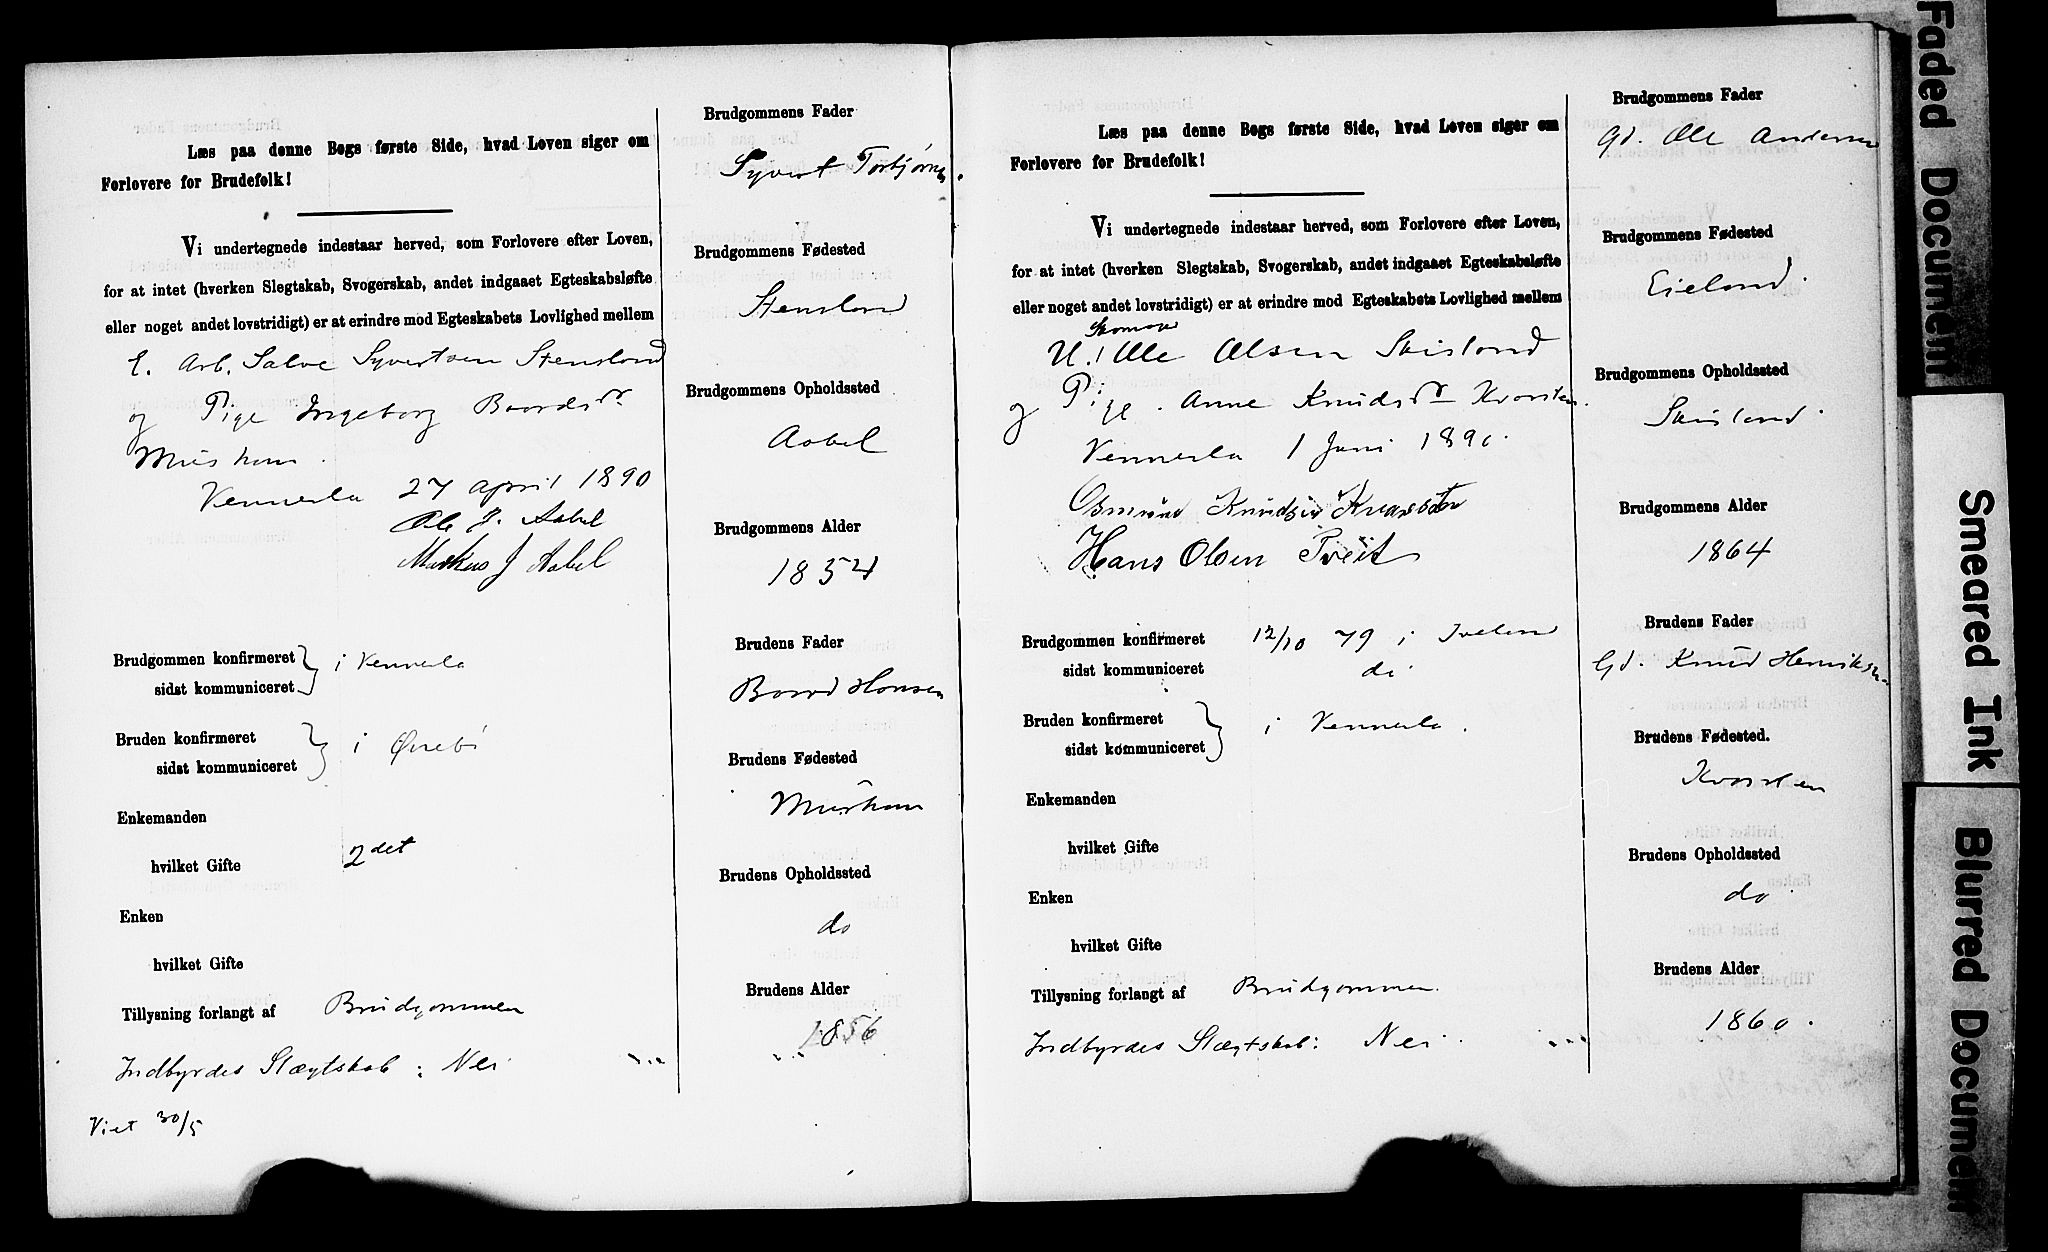 Læs paa denne Bogs første Side, hvad Loven siger om
Forlovere for Brudefolk!
Vi undertegnede indestaar herved, som Forlovere efter Loven,
for at intet (hverken Slegtskab, Svogerskab, andet indgaaet Egteskabsløfte
eller noget andet lovstridigt) er at erindre mod Egteskabets Lovlighed mellem
E. Arb. Salve Syvertsen Stensland
og Pige Ingeborg Baardsdr
Mushom.
Vennesla 27 april 1890
Ole J. Aabel
Markus J Aabel
Brudgommen konfirmeret
sidst kommuniceret } i Vennesla
Bruden konfirmeret
sidst kommuniceret } i Øvrebø
Enkemanden
hvilket Gifte 2det
Enken
hvilket Gifte
Tillysning forlangt af Brudgommen
Indbyrdes Slægtskab: Nei
Viet 30/5
Brudgommens Fader
Syvert Torbjørns.
Brudgommens Fødested
Stensland
Brudgommens Opholdssted
Aabel
Brudgommens Alder
1854
Brudens Fader
Baard Hansen
Brudens Fødested
Mushom
Brudens Opholdssted
do
Brudens Alder
1856
Læs paa denne Bogs første Side, hvad Loven siger om
Forlovere for Brudefolk!
Vi undertegnede indestaar herved, som Forlovere efter Loven,
for at intet (hverken Slegtskab, Svogerskab, andet indgaaet Egteskabsløfte
eller noget andet lovstridigt) er at erindre mod Egteskabets Lovlighed mellem
Skomager
U. Ole Olsen Skisland
og Pige. Anne Knudsdr Kvarsten.
Vennesla 1 Juni 1890.
Osmund Knudsen Kvarsten
Hans Olsen Tveit
Brudgommen konfirmeret 12/10 79 i Iveland
sidst kommuniceret do
Bruden konfirmeret
sidst kommuniceret } i Vennesla.
Enkemanden
hvilket Gifte
Enken
hvilket Gifte
Tillysning forlangt af Brudgommen.
Indbyrdes Slægtskab: Nei.
Brudgommens Fader
Gd. Ole Andersen
Brudgommens Fødested
Eieland.
Brudgommens Opholdssted
Skisland.
Brudgommens Alder
1864
Brudens Fader
Gd. Knud Henriksen
Brudens Fødested.
Kvarsten
Brudens Opholdssted
do
Brudens Alder
1860.
Faded Document
Smeared Ink
Blurred Document